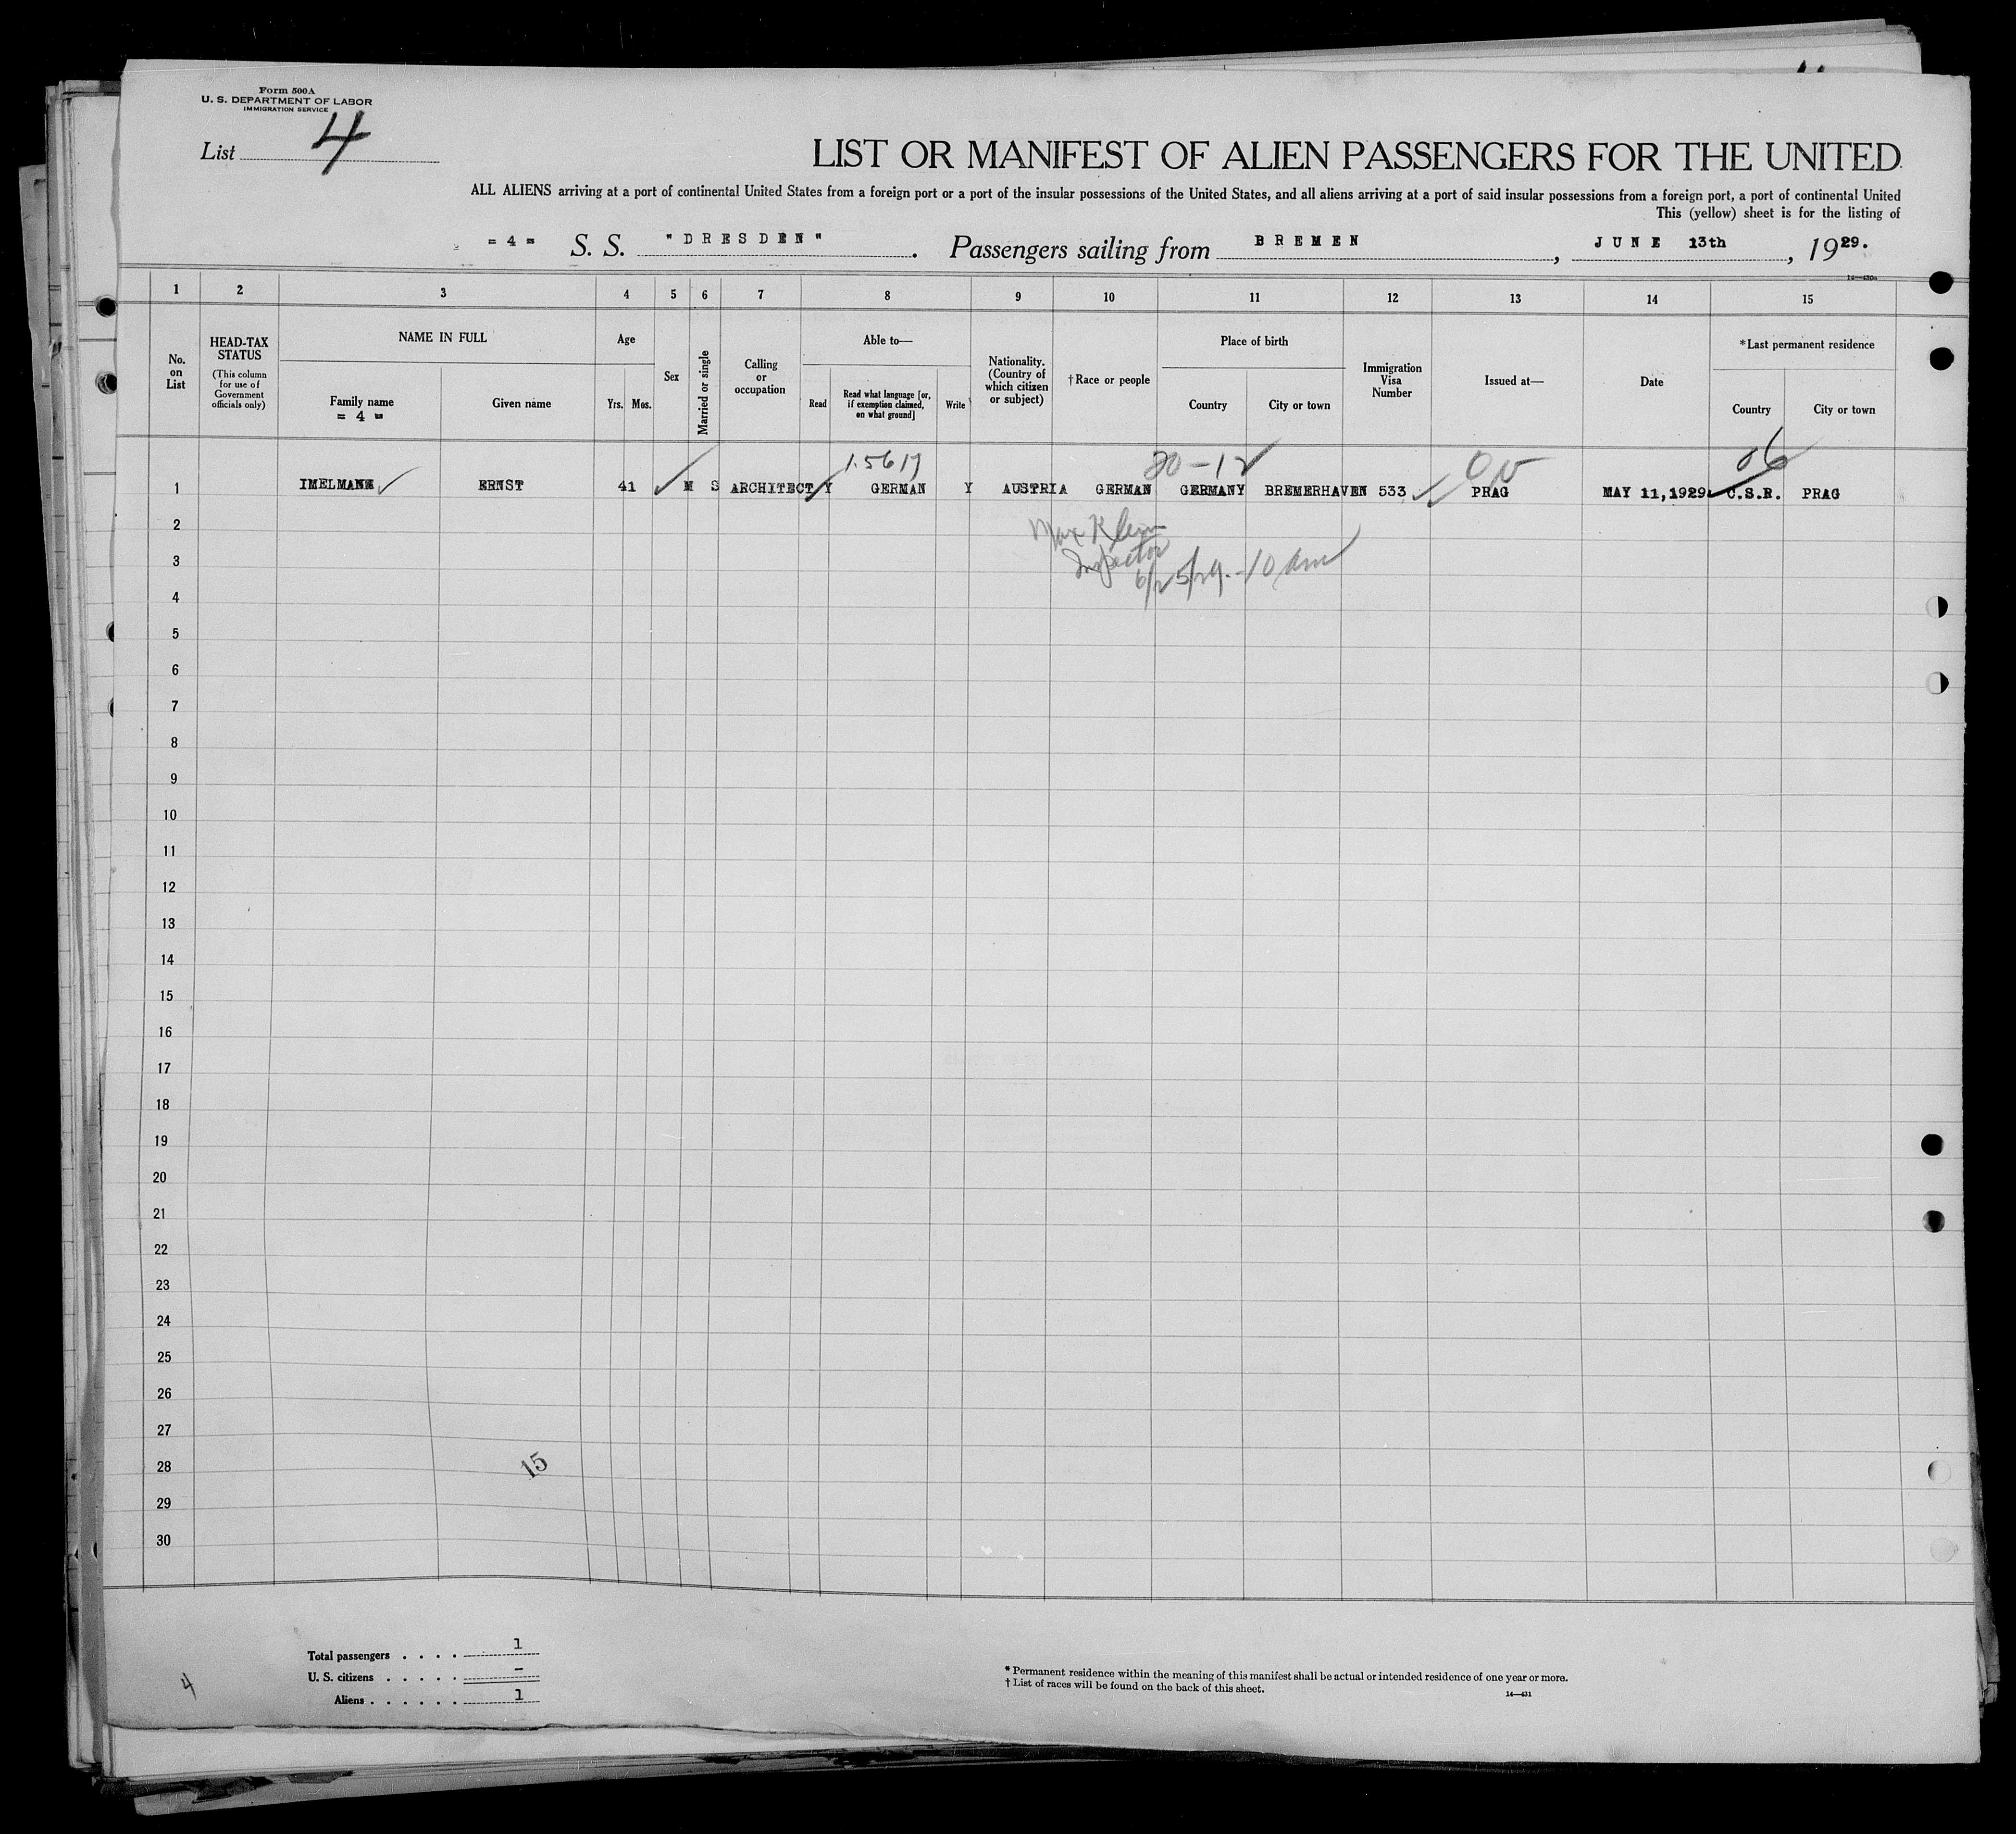 Form 500A
U. S. DEPARTMENT OF LABOR
IMMIGRATION SERVICE
List 4
LIST OR MANIFEST OF ALIEN PASSENGERS FOR THE UNITED
ALL ALIENS arriving at a port of continental United States from a foreign port or a port of the insular possessions of the United States, and all aliens arriving at a port of said insular possessions from a foreign port, a port of continental United
This (yellow) sheet is for the listing of
= 4 = S. S. "DRESDEN". Passengers sailing from BREMEN, JUNE 13th, 1929.
1 2 3 4 5 6 7 8 9 10 11 12 13 14 15
No. on List
HEAD-TAX STATUS
(This column for use of Government officials only)
NAME IN FULL
Family name
= 4 =
Given name
Age
Yrs. Mos.
Sex
Married or single
Calling or occupation
Able to—
Read
Read what language [or, if exemption claimed, on what ground]
Write
Nationality. (Country of which citizen or subject)
† Race or people
Place of birth
Country
City or town
Immigration Visa Number
Issued at—
Date
*Last permanent residence
Country
City or town
20-12
06
1 IMELMANN ERNST 41 M S ARCHITECT Y GERMAN Y AUSTRIA GERMAN GERMANY BREMERHAVEN 533 PRAG MAY 11,1929 C.S.R. PRAG
2
Max Klein
3
Inspector
6/25/29. - 10 am
4
5
6
7
8
9
10
11
12
13
14
15
16
17
18
19
20
21
22
23
24
25
26
27
28
15
29
30
Total passengers . . . . 1
U. S. citizens . . . . . –
Aliens . . . . . . 1
4
* Permanent residence within the meaning of this manifest shall be actual or intended residence of one year or more.
† List of races will be found on the back of this sheet.
14—431